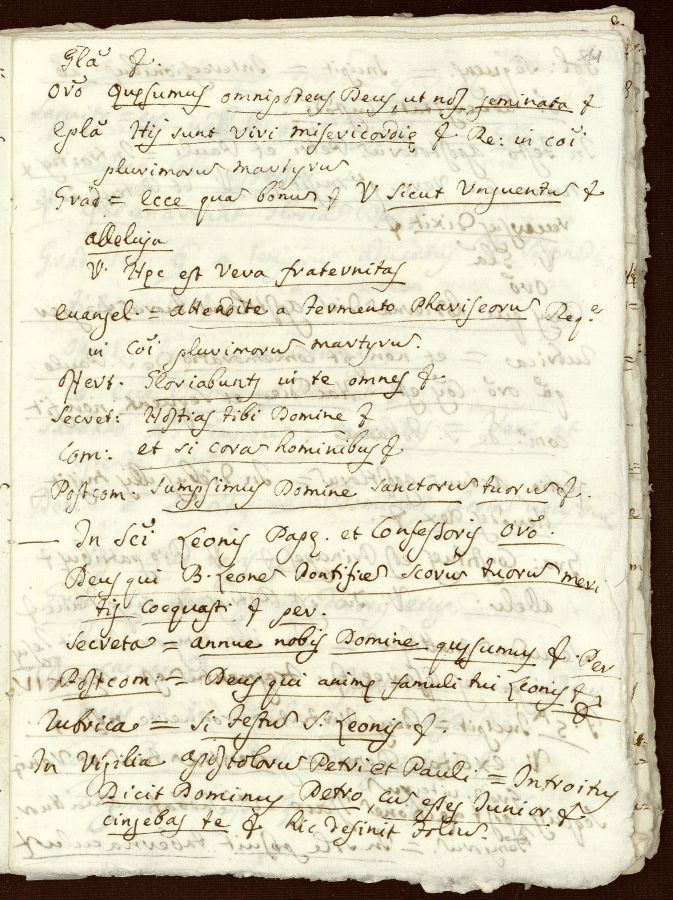 Glã &.
Orõ Quęsumus omnipotens Deus, ut nos geminata &
Eplã Hij sunt viri misericordię & Re: in coĩ
plurimorũ martyrũ
Grad = Ecce quã bonũ & V sicut Unguentũ &
alleluja
V. Hęc est vera fraternitas
Euangel. = attendite a fermento Phariseorũ Req.e
in coĩ plurimorũ martyrũ.
Offert. Gloriabuntj in te omnes &.
Secret: Hostias tibi Domine &
Com: et si corã hominibus &
Postcom Sumpsimus Domine sanctorũ tuorũ &.
— In Scĩ Leonis Papę. et Confessoris Orõ.
Deus qui B. Leonẽ Pontificẽ Scorũ tuorũ meri
tis coequasti & per.
Secreta = annue nobis Domine quęsumus & Per
Postcom: = Deus qui animę famuli tui Leonis &
Rubrica = Si festũ S. Leonis &.
In Vigilia apostolorũ Petri et Pauli = Introitus
Dicit Dominus Petro, cũ esses Junior &
cingebas te & hic desinit folius.